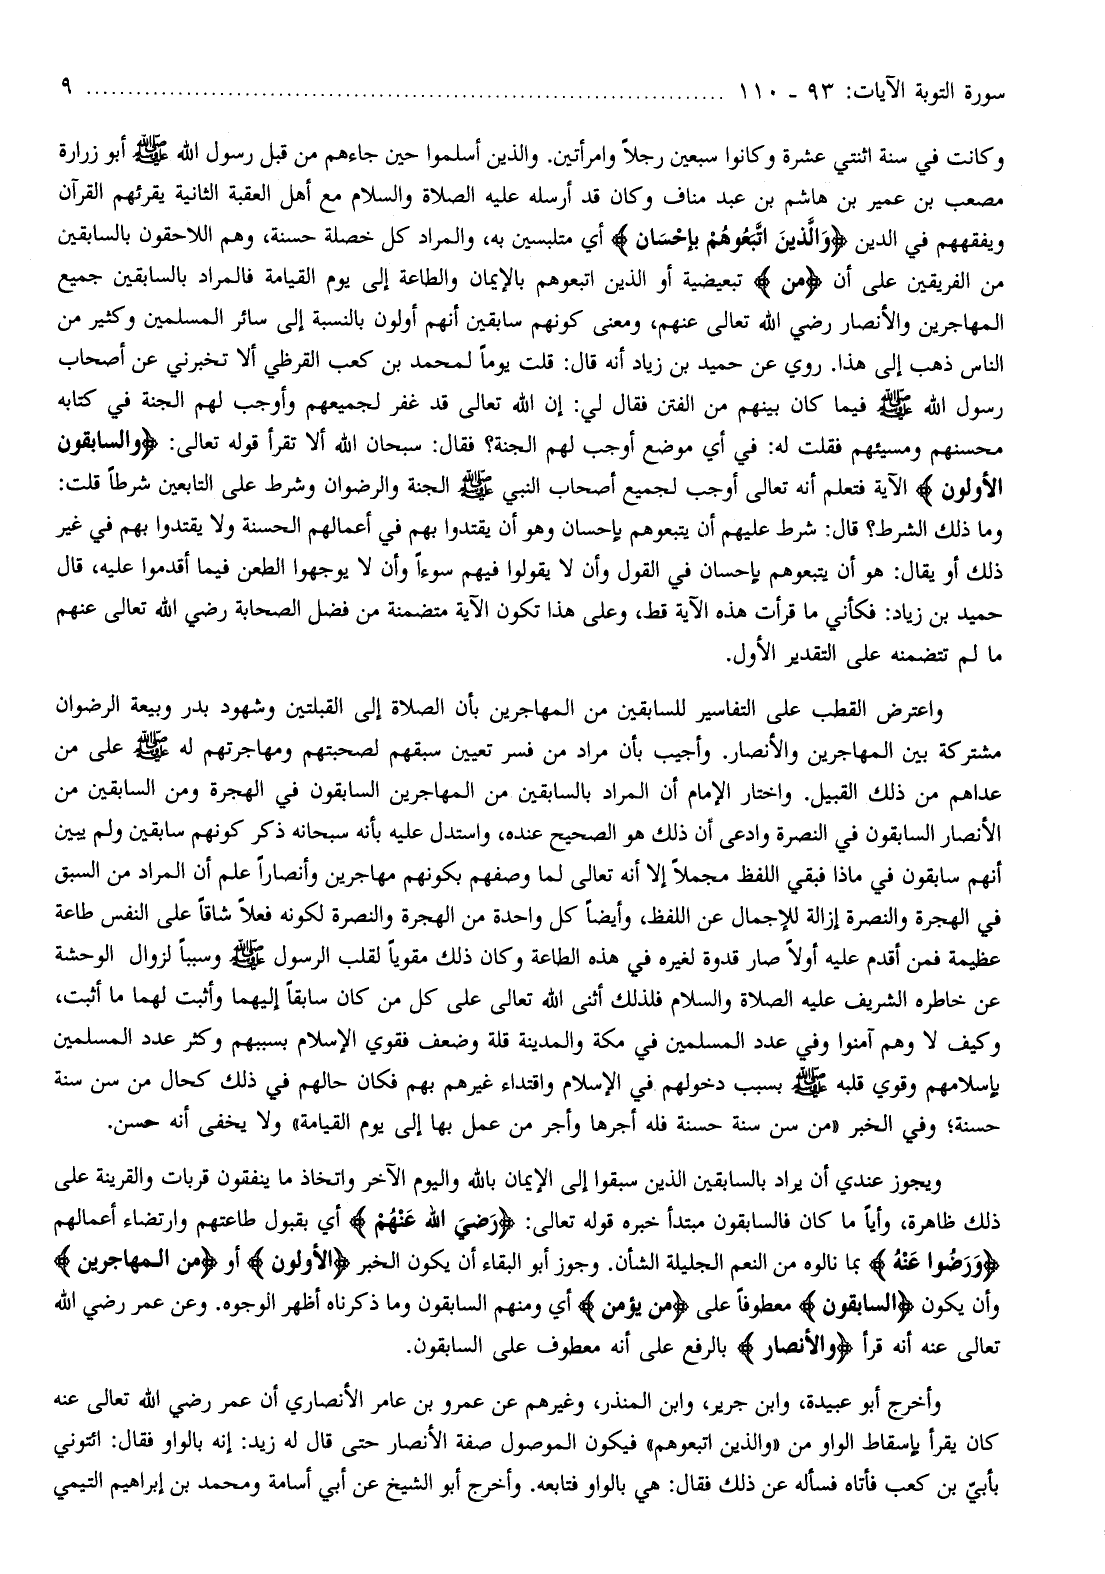 سورة التوبة الآيات: ٩٣ ـ ١١٠ ........................................................................ ٩
وكانت في سنة اثنتي عشرة وكانوا سبعين رجلاً وامرأتين. والذين أسلموا حين جاءهم من قبل رسول الله ﷺ أبو زرارة
مصعب بن عمير بن هاشم بن عبد مناف وكان قد أرسله عليه الصلاة والسلام مع أهل العقبة الثانية يقرئهم القرآن
ويفقههم في الدين ﴿وَالَّذينَ اتَّبَعُوهُمْ بإحْسَان﴾ أي متلبسين به، والمراد كل خصلة حسنة، وهم اللاحقون بالسابقين
من الفريقين على أن ﴿من﴾ تبعيضية أو الذين اتبعوهم بالإيمان والطاعة إلى يوم القيامة فالمراد بالسابقين جميع
المهاجرين والأنصار رضي الله تعالى عنهم، ومعنى كونهم سابقين أنهم أولون بالنسبة إلى سائر المسلمين وكثير من
الناس ذهب إلى هذا. روي عن حميد بن زياد أنه قال: قلت يوماً لمحمد بن كعب القرظي ألا تخبرني عن أصحاب
رسول الله ﷺ فيما كان بينهم من الفتن فقال لي: إن الله تعالى قد غفر لجميعهم وأوجب لهم الجنة في كتابه
محسنهم ومسيئهم فقلت له: في أي موضع أوجب لهم الجنة؟ فقال: سبحان الله ألا تقرأ قوله تعالى: ﴿والسابقون
الأولون﴾ الآية فتعلم أنه تعالى أوجب لجميع أصحاب النبي ﷺ الجنة والرضوان وشرط على التابعين شرطاً قلت:
وما ذلك الشرط؟ قال: شرط عليهم أن يتبعوهم بإحسان وهو أن يقتدوا بهم في أعمالهم الحسنة ولا يقتدوا بهم في غير
ذلك أو يقال: هو أن يتبعوهم بإحسان في القول وأن لا يقولوا فيهم سوءاً وأن لا يوجهوا الطعن فيما أقدموا عليه، قال
حميد بن زياد: فكأني ما قرأت هذه الآية قط، وعلى هذا تكون الآية متضمنة من فضل الصحابة رضي الله تعالى عنهم
ما لم تتضمنه على التقدير الأول.
واعترض القطب على التفاسير للسابقين من المهاجرين بأن الصلاة إلى القبلتين وشهود بدر وبيعة الرضوان
مشتركة بين المهاجرين والأنصار. وأجيب بأن مراد من فسر تعيين سبقهم لصحبتهم ومهاجرتهم له ﷺ على من
عداهم من ذلك القبيل. واختار الإمام أن المراد بالسابقين من المهاجرين السابقون في الهجرة ومن السابقين من
الأنصار السابقون في النصرة وادعى أن ذلك هو الصحيح عنده، واستدل عليه بأنه سبحانه ذكر كونهم سابقين ولم يبين
أنهم سابقون في ماذا فبقي اللفظ مجملاً إلا أنه تعالى لما وصفهم بكونهم مهاجرين وأنصاراً علم أن المراد من السبق
في الهجرة والنصرة إزالة للإجمال عن اللفظ، وأيضاً كل واحدة من الهجرة والنصرة لكونه فعلاً شاقاً على النفس طاعة
عظيمة فمن أقدم عليه أولاً صار قدوة لغيره في هذه الطاعة وكان ذلك مقوياً لقلب الرسول ﷺ وسبباً لزوال الوحشة
عن خاطره الشريف عليه الصلاة والسلام فلذلك أثنى الله تعالى على كل من كان سابقاً إليهما وأثبت لهما ما أثبت،
وكيف لا وهم آمنوا وفي عدد المسلمين في مكة والمدينة قلة وضعف فقوي الإسلام بسببهم وكثر عدد المسلمين
بإسلامهم وقوي قلبه ﷺ بسبب دخولهم في الإسلام واقتداء غيرهم بهم فكان حالهم في ذلك كحال من سن سنة
حسنة؛ وفي الخبر «من سن سنة حسنة فله أجرها وأجر من عمل بها إلى يوم القيامة» ولا يخفى أنه حسن.
ويجوز عندي أن يراد بالسابقين الذين سبقوا إلى الإيمان بالله واليوم الآخر واتخاذ ما ينفقون قربات والقرينة على
ذلك ظاهرة، وأياً ما كان فالسابقون مبتدأ خبره قوله تعالى: ﴿رَضيَ الله عَنْهُمْ﴾ أي بقبول طاعتهم وارتضاء أعمالهم
﴿وَرَضُوا عَنْهُ﴾ بما نالوه من النعم الجليلة الشأن. وجوز أبو البقاء أن يكون الخبر ﴿الأولون﴾ أو ﴿من المهاجرين﴾
وأن يكون ﴿السابقون﴾ معطوفاً على ﴿من يؤمن﴾ أي ومنهم السابقون وما ذكرناه أظهر الوجوه. وعن عمر رضي الله
تعالى عنه أنه قرأ ﴿والأنصار﴾ بالرفع على أنه معطوف على السابقون.
وأخرج أبو عبيدة، وابن جرير، وابن المنذر، وغيرهم عن عمرو بن عامر الأنصاري أن عمر رضي الله تعالى عنه
كان يقرأ بإسقاط الواو من «والذين اتبعوهم» فيكون الموصول صفة الأنصار حتى قال له زيد: إنه بالواو فقال: ائتوني
بأبيّ بن كعب فأتاه فسأله عن ذلك فقال: هي بالواو فتابعه. وأخرج أبو الشيخ عن أبي أسامة ومحمد بن إبراهيم التيمي